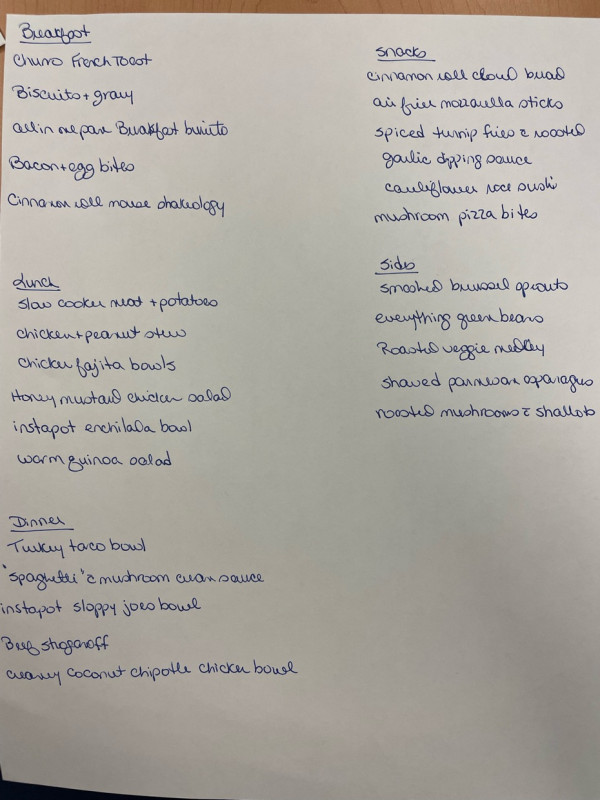 Breakfast
Churro French Toast
Biscuits + gravy
all in one pan Breakfast burrito
Bacon + egg bites
Cinnamon roll mousse shakeology
Lunch
slow cooker meat + potatoes
chicken + peanut stew
chicken fajita bowls
Honey mustard chicken salad
instapot enchilada bowl
warm quinoa salad
Dinner
Turkey taco bowl
"spaghetti" c̄ mushroom cream sauce
instapot sloppy joes bowl
Beef stroganoff
creamy coconut chipotle chicken bowl
snacks
cinnamon roll cloud bread
air frier mozzarella sticks
spiced turnip fries c̄ roasted
garlic dipping sauce
cauliflower rice sushi
mushroom pizza bites
Sides
smashed brussel sprouts
everything green beans
Roasted veggie medley
shaved parmesan asparagus
roasted mushrooms c̄ shallots